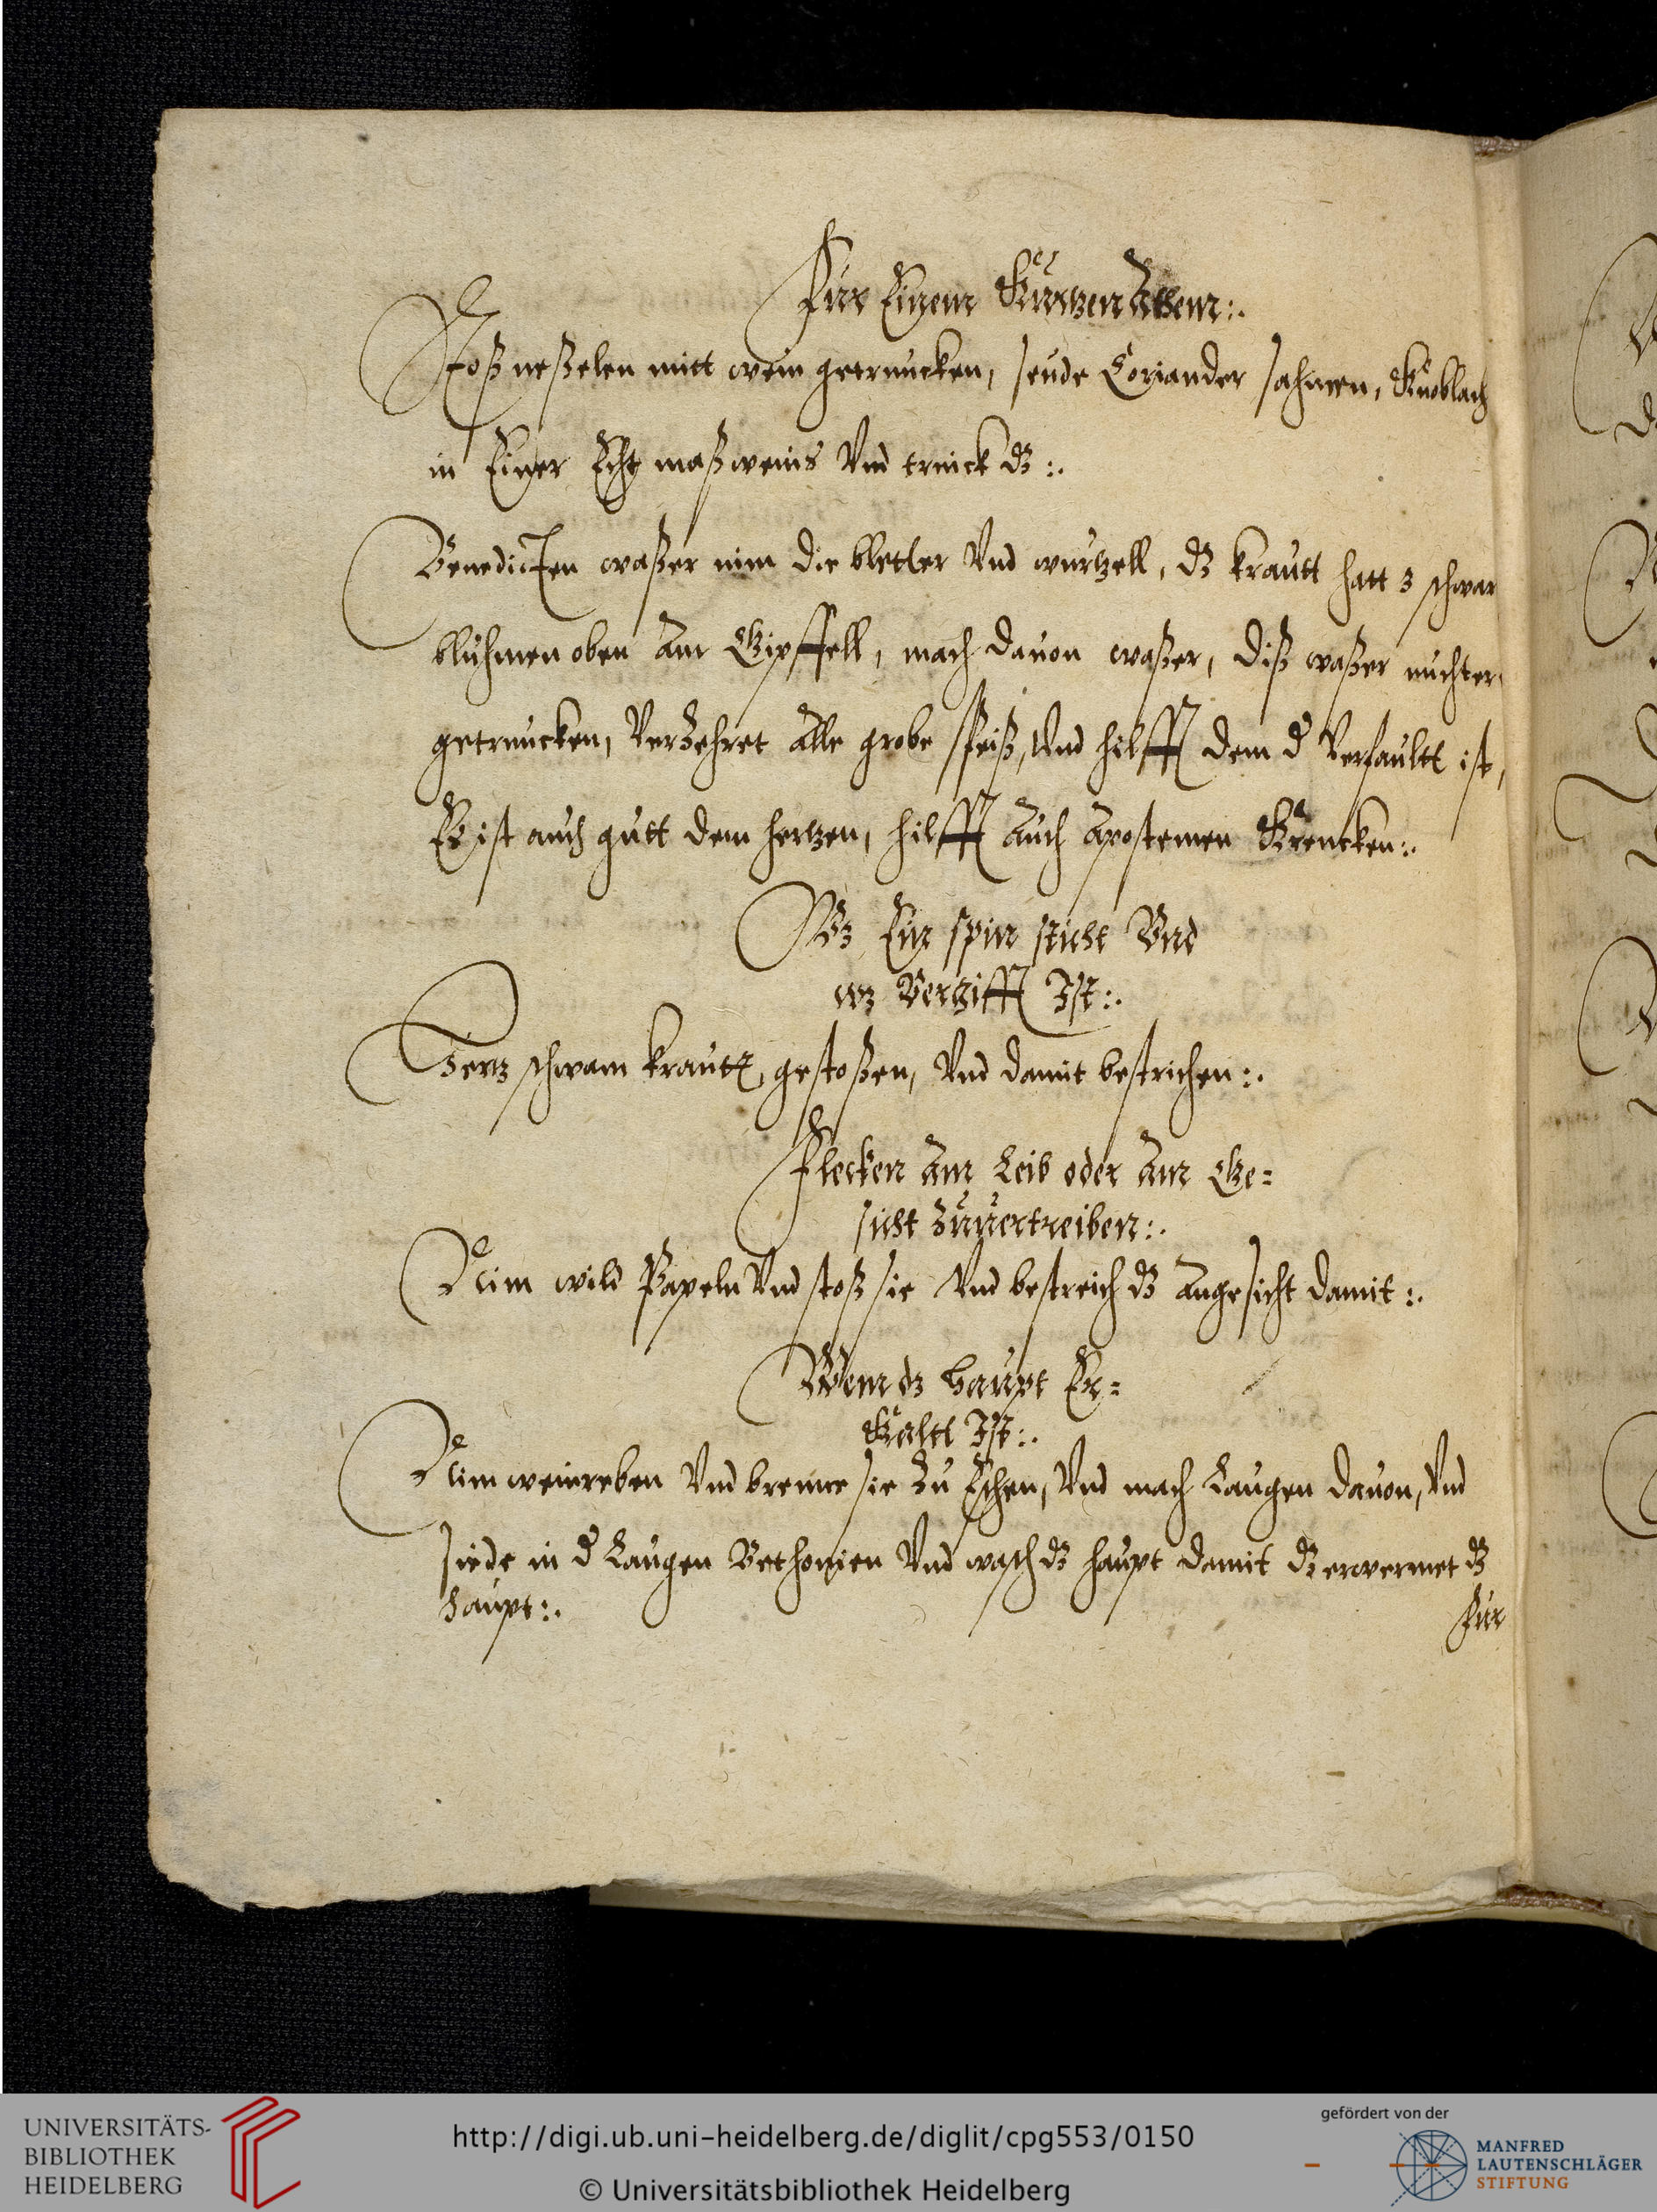 Fur Einem Kurtzen Athem:.
Stoß neßelen mitt wein getruncken, seude Coriander sahmen, Knoblach
in Einer Echt maß weins Vnd trinck dz :.
Benedicten waßer nim die bletter Vnd wurtzell, dz krautt hatt 3 schwar
bluhmen oben Am Gipffell, mach dauon waßer, diß waßer nuchter
getruncken, Verzehret Alle grobe speiß, Vnd hilfft dem d Verfaultt ist,
Es ist auch gutt dem hertzen, hilfft Auch Apostemen Krencken:.
Wz Ein spin sticht Vnd
wz Vergifft Ist:.
schwam krautt, gestoßen, Vnd damit bestrichen:.
Flecken Am Leib oder Am Ge=
sicht Zuuertreiben:.
Nim wild Papeln Vnd stoß sie Vnd bestreich dz Angesicht damit:.
Wem dz haupt Er=
Kaltt Ist:.
Nim weinreben Vnd brenne sie Zu Eschen, Vnd mach Laugen dauon, Vnd
siede in d Laugen Bethonien Vnd wasch dz haupt damit dz erwermet dz
haupt:.
Fur
UNIVERSITÄTS-
BIBLIOTHEK
HEIDELBERG
http://digi.ub.uni-heidelberg.de/diglit/cpg553/0150
© Universitätsbibliothek Heidelberg
gefördert von der
MANFRED
LAUTENSCHLÄGER
STIFTUNG